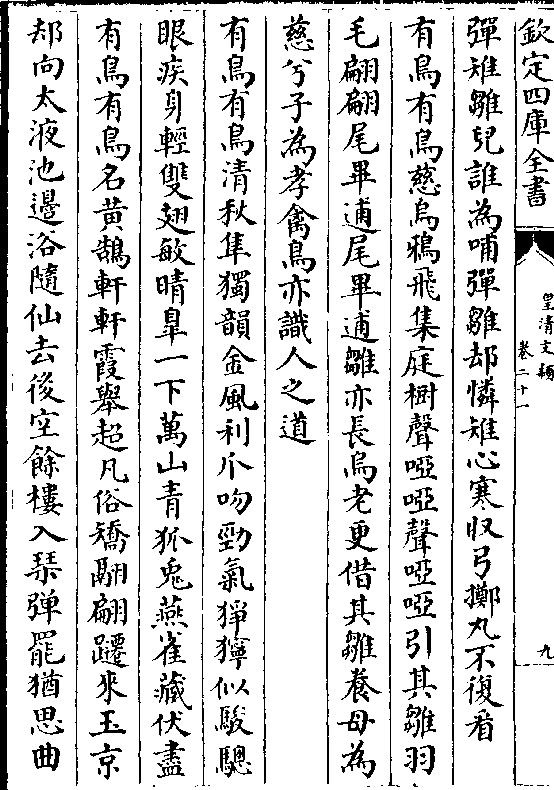 欽定四庫全書
皇清文穎
卷二十一
九
彈雉雛兒誰為哺彈雛却憐雉心寒收弓擲丸不復看
有鳥有鳥慈烏鴉飛集庭樹聲啞啞聲啞啞引其雛羽
毛翩翩尾畢逋尾畢逋雛亦長烏老更借其雛養母為
慈兮子為孝禽鳥亦識人之道
有鳥有鳥清秋隼獨韻金風利爪吻勁氣猙獰似駿驄
眼疾身輕雙翅敏晴臯一下萬山青狐兎燕雀藏伏盡
有鳥有鳥名黃鵠軒軒霞舉超凡俗矯翮翩躚來玉京
却向太液池邊浴隨仙去後空餘樓入琴彈罷猶思曲